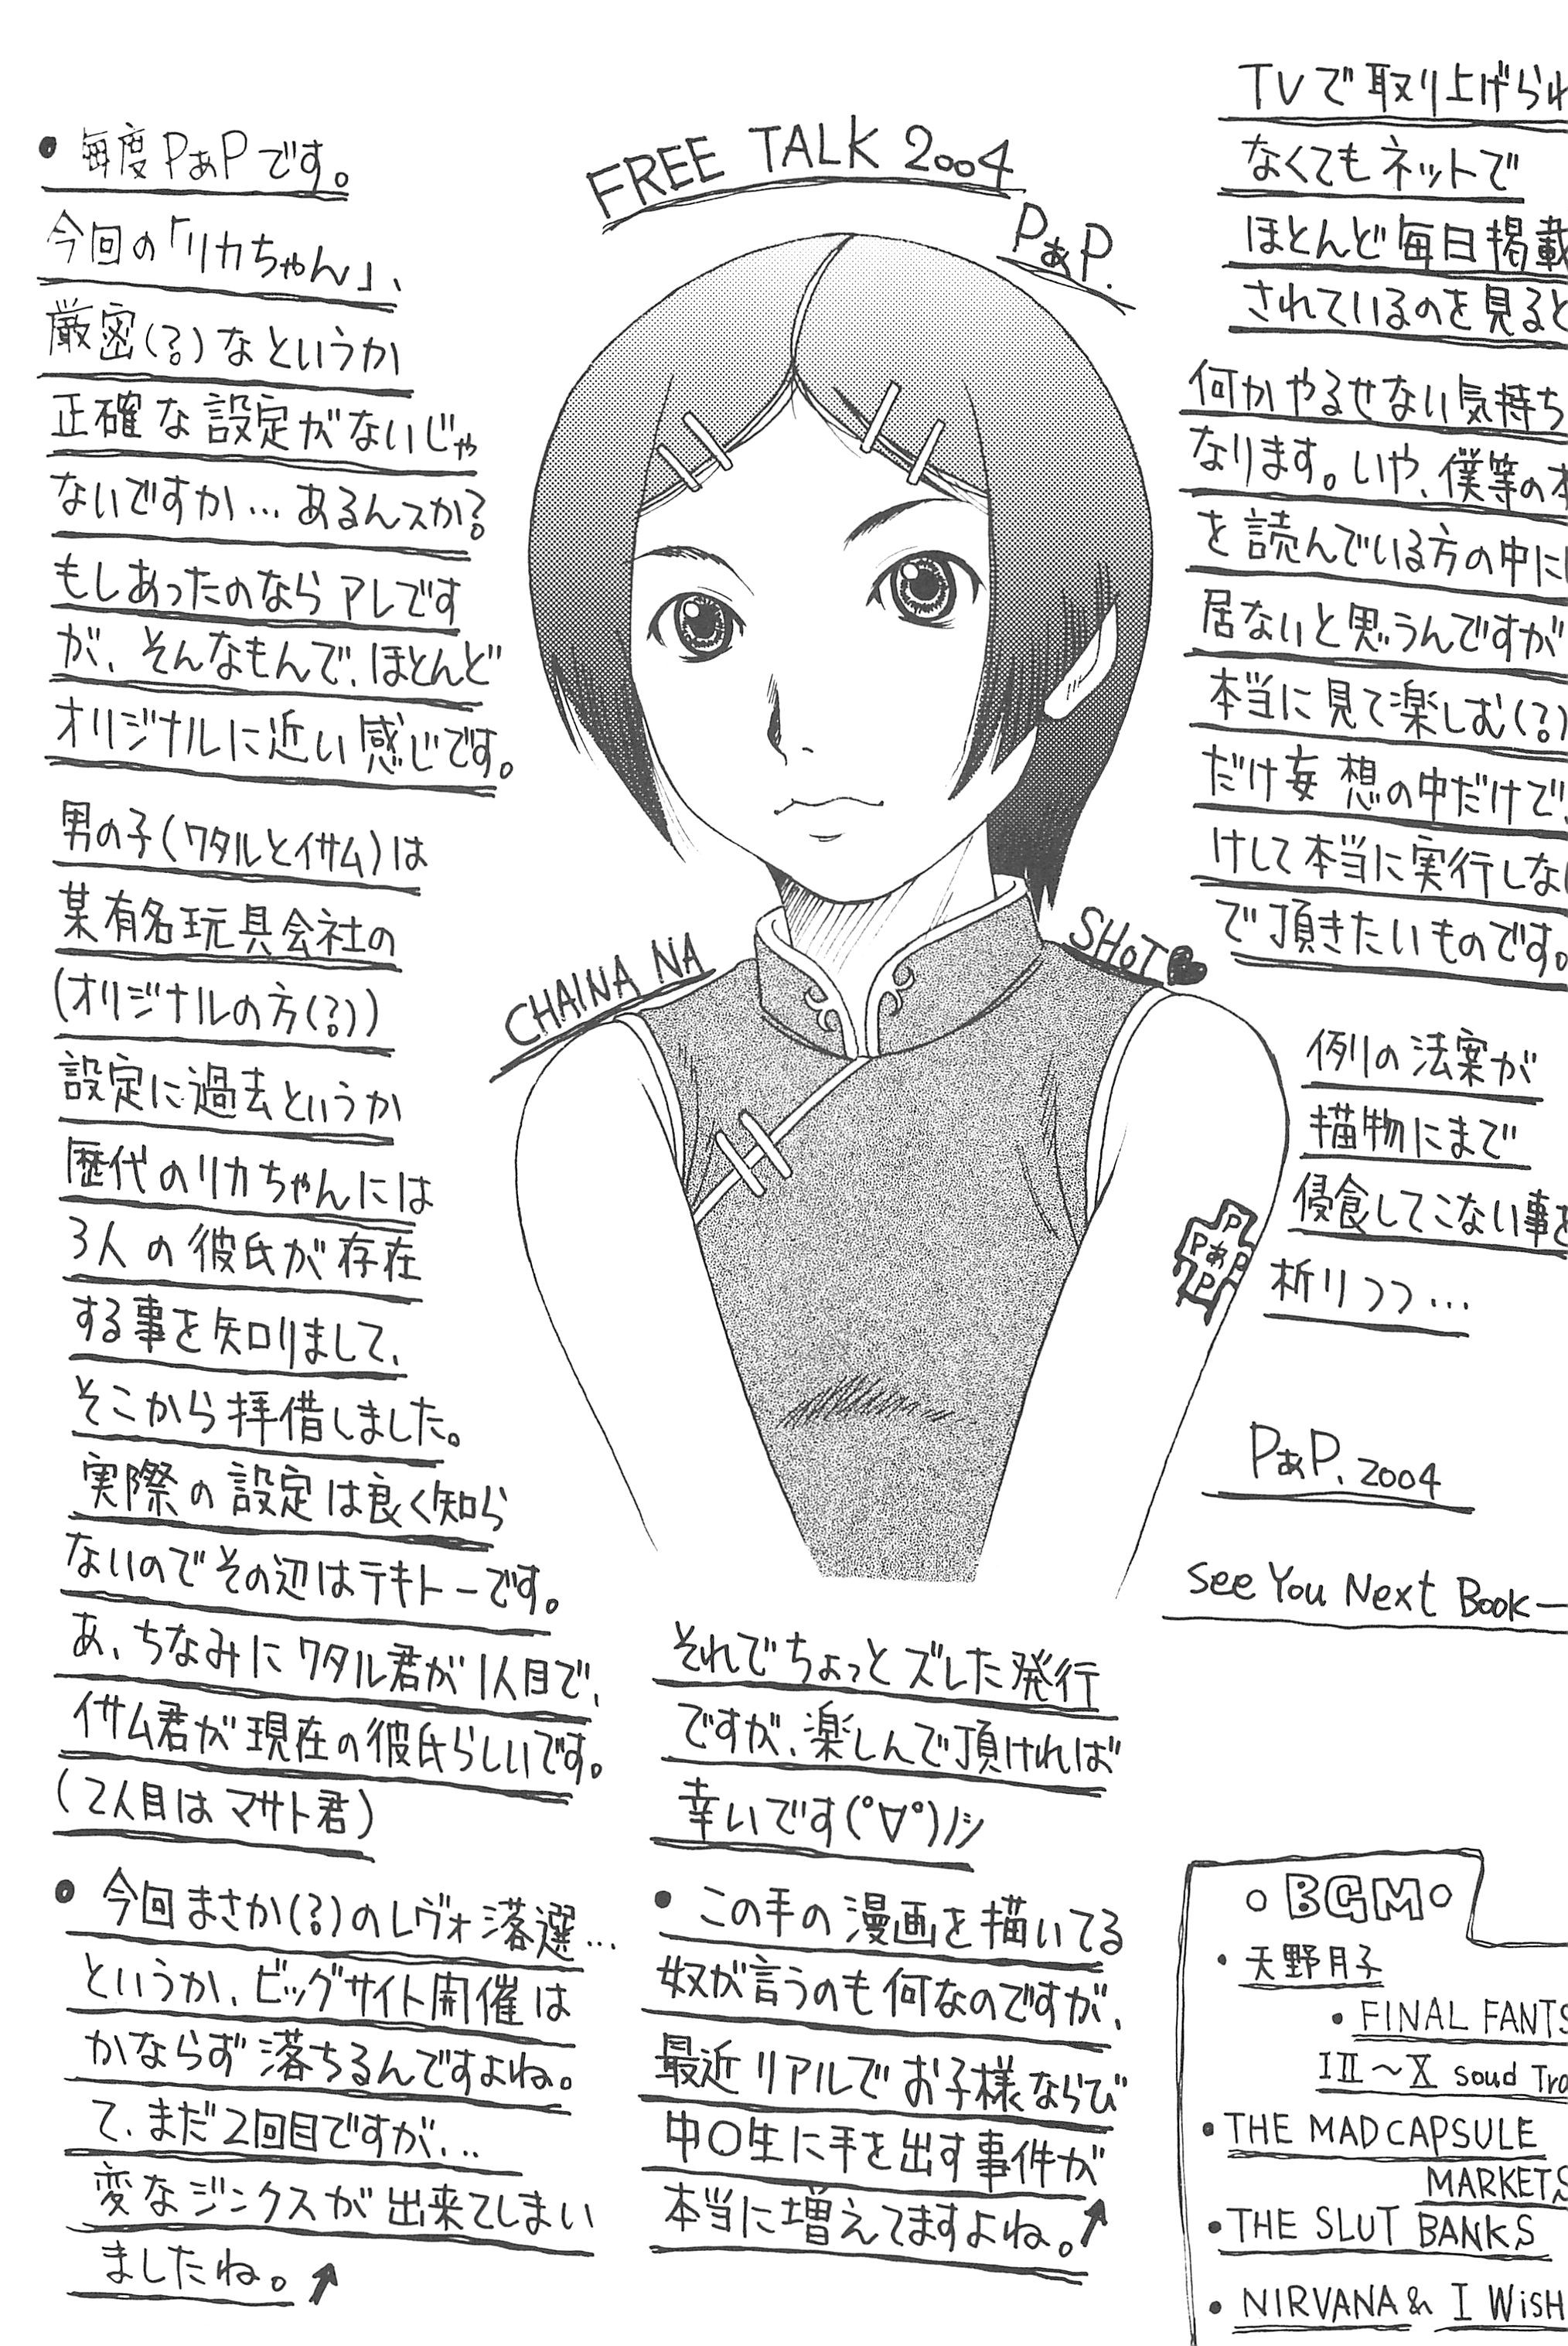 FREE TALK 2004
PぁP.
• 毎度PぁPです。
今回の「リカちゃん」、
厳密(?)なというか
正確な設定がないじゃ
ないですか…あるんスか?
もしあったのならアレです
が、そんなもんで、ほとんど
オリジナルに近い感じです。
男の子(ワタルとイサム)は
某有名玩具会社の
(オリジナルの方(?))
設定に過去というか
歴代のリカちゃんには
3人の彼氏が存在
する事を知りまして、
そこから拝借しました。
実際の設定は良く知ら
ないのでその辺はテキトーです。
あ、ちなみにワタル君が1人目で、
イサム君が現在の彼氏らしいです。
(2人目はマサト君)
• 今回まさか(?)のレヴォ落選…
というか、ビッグサイト開催は
かならず落ちるんですよね。
て、まだ2回目ですが…
変なジンクスが出来てしまい
ましたね。↗
CHAINA NA
SHOT♥
P
PぁP
P
それでちょっとズレた発行
ですが、楽しんで頂ければ
幸いです(°∀°)ノシ
• この手の漫画を描いてる
奴が言うのも何なのですが、
最近リアルでお子様ならび
中〇生に手を出す事件が
本当に増えてますよね。↗
TVで取り上げられ
なくてもネットで
ほとんど毎日掲載
されているのを見ると
何かやるせない気持ち
なります。いや、僕等の本
を読んでいる方の中に
居ないと思うんですが
本当に見て楽しむ(?)
だけ妄想の中だけで、
けして本当に実行しない
で頂きたいものです。
例の法案が
描物にまで
侵食してこない事を
祈りつつ…
PぁP. 2004
See You Next Book—
○BGM○
• 天野月子
• FINAL FANTS
IⅡ〜X soud Tra
• THE MADCAPSULE
MARKETS
• THE SLUT BANKS
• NIRVANA & I WiSH